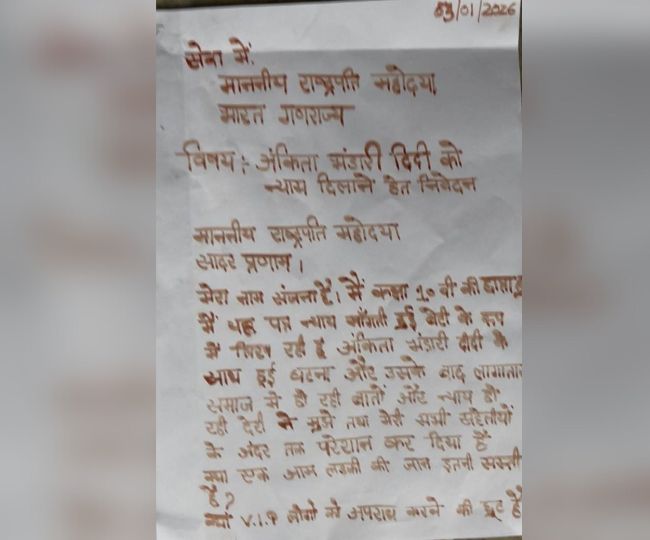 03/01/2026
सेवा में,
माननीय राष्ट्रपति महोदया,
भारत गणराज्य
विषय :- अंकिता भंडारी दिदी को
न्याय दिलाने हेत निवेदन
माननीय राष्ट्रपति महोदया
सादर प्रणाम ।
मेरा नाम संजना है। मैं कक्षा 10 वी की छात्रा हू
मैं यह पत्र न्याय माँगती हुई बेटी के रूप
में लिख रही हूं अंकिता भंडारी दीदी के
साथ हुई घटना और उसके बाद लागातार
समाज में हो रही बातों और न्याय हो
रही देरी ने मुझे तथा मेरी सभी सहेलीयों
के अंदर तक परेशान कर दिया है
क्या एक आम लडकी की जान इतनी सस्ती
है?
क्यों V.I.P लोगो को अपराध करने की छूट है